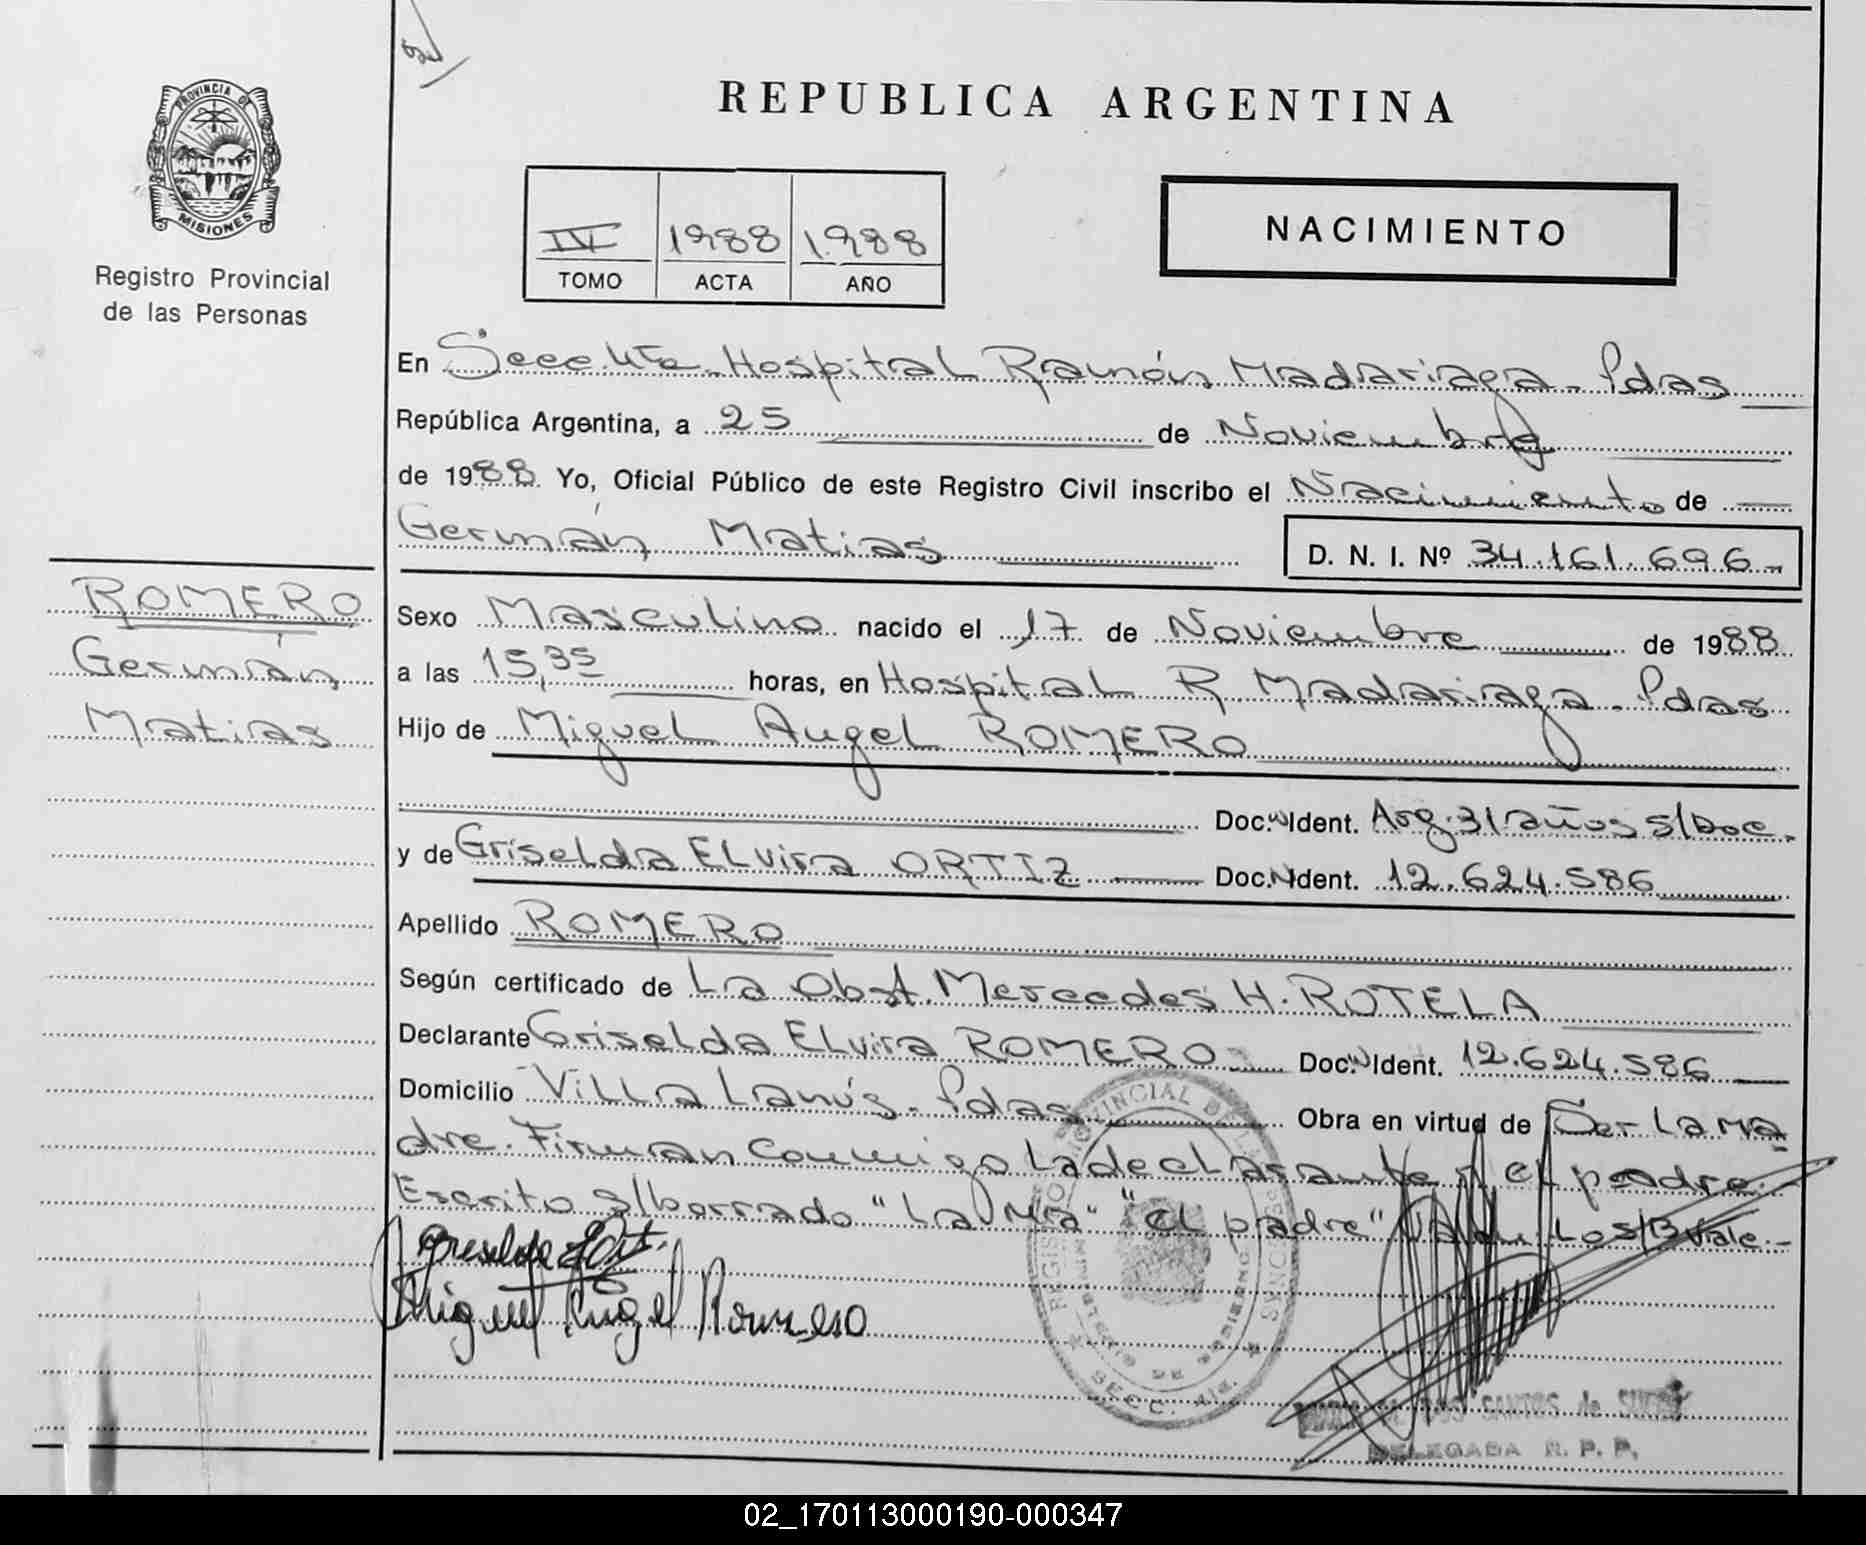 REPUBLICA ARGENTINA
PROVINCIA DE
MISIONES
Registro Provincial
de las Personas
IV 1988 1.988
TOMO ACTA AÑO
NACIMIENTO
En Secc. 4ta. Hospital Ramón Madariaga - Pdas
República Argentina, a 25 de Noviembre
de 1988 Yo, Oficial Público de este Registro Civil inscribo el Nacimiento de
Germán Matias D. N. I. Nº 34.161.696-
ROMERO
Germán
Matias
Sexo Masculino nacido el 17 de Noviembre de 1988
a las 15,35 horas, en Hospital R. Madariaga - Pdas
Hijo de Miguel Angel ROMERO
Doc. Ident. Arg. 31 años s/Doc.
y de Griselda Elvira ORTIZ Doc. Ident. 12.624.586
Apellido ROMERO
Según certificado de La Obst. Mercedes H. ROTELA
Declarante Griselda Elvira ROMERO Doc. Ident. 12.624.586
Domicilio Villa Lanús - Pdas Obra en virtud de Ser la ma
dre. Firman conmigo la declarante y el padre.
Escrito s/borrado "La Ma" "el padre" Los/B Vale.-
Miguel Angel Romero
SECC. 4ta.
SANTOS de
DELEGADA R. P. P.
02_170113000190-000347